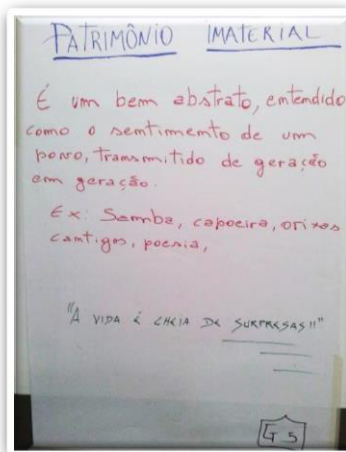 PATRIMÔNIO IMATERIAL
É um bem abstrato, entendido
como o sentimento de um
povo, transmitido de geração
em geração.
Ex: Samba, capoeira, orixas
cantigas, poesia,
"A VIDA É CHEIA DE SURPRESAS!!"
G 5